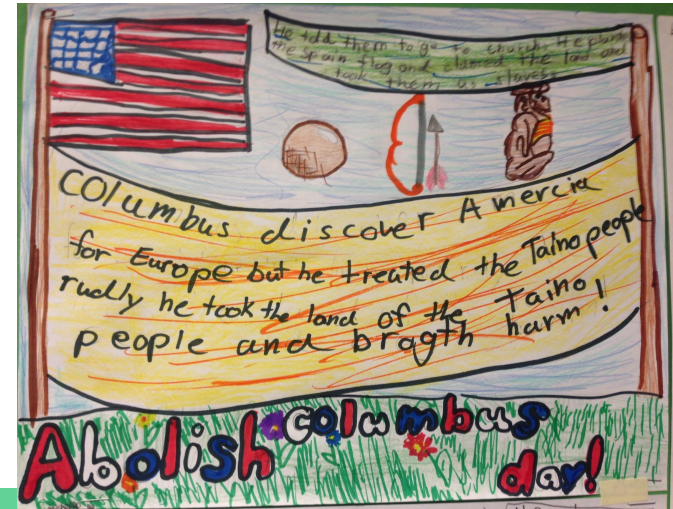 He told them to go to church. He planted
the Spain flag and claimed the land and
took them as slaves
Columbus discover Amercia
for Europe but he treated the Taino people
rudly he took the land of the Taino
people and bragth harm!
Abolish columbus
day!